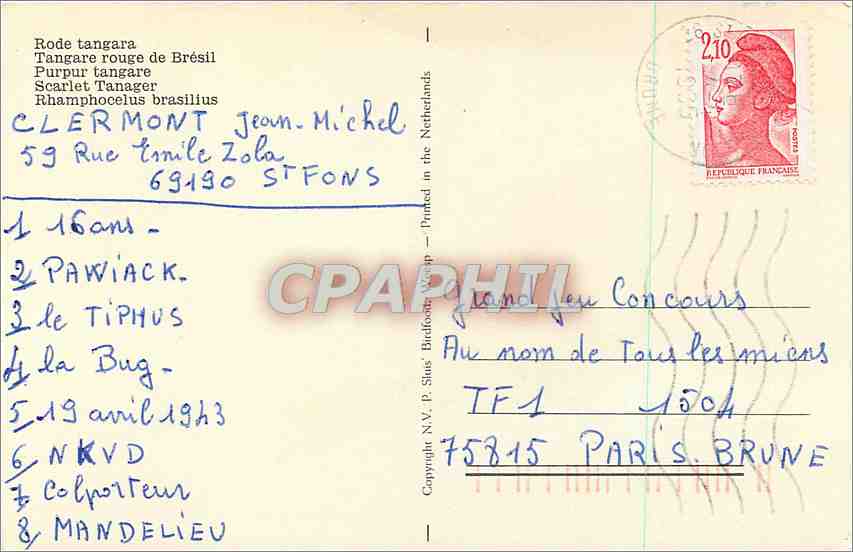 Rode tangara
Tangare rouge de Brésil
Purpur tangare
Scarlet Tanager
Rhamphocelus brasilius
CLERMONT Jean-Michel
59 Rue Emile Zola
69190 ST FONS
1 16 ans -
2 PAWIACK.
3 le TIPHUS
4 la Bug -
5 19 avril 1943
6 NKVD
7 Colporteur
8 MANDELIEU
Copyright N.V. P. Sluis' Birdfood, Weesp — Printed in the Netherlands
2,10
POSTES
REPUBLIQUE FRANÇAISE
CPAPHIL
Grand Jeu Concours
Au nom de Tous les miens
TF1 1504
75815 PARIS. BRUNE